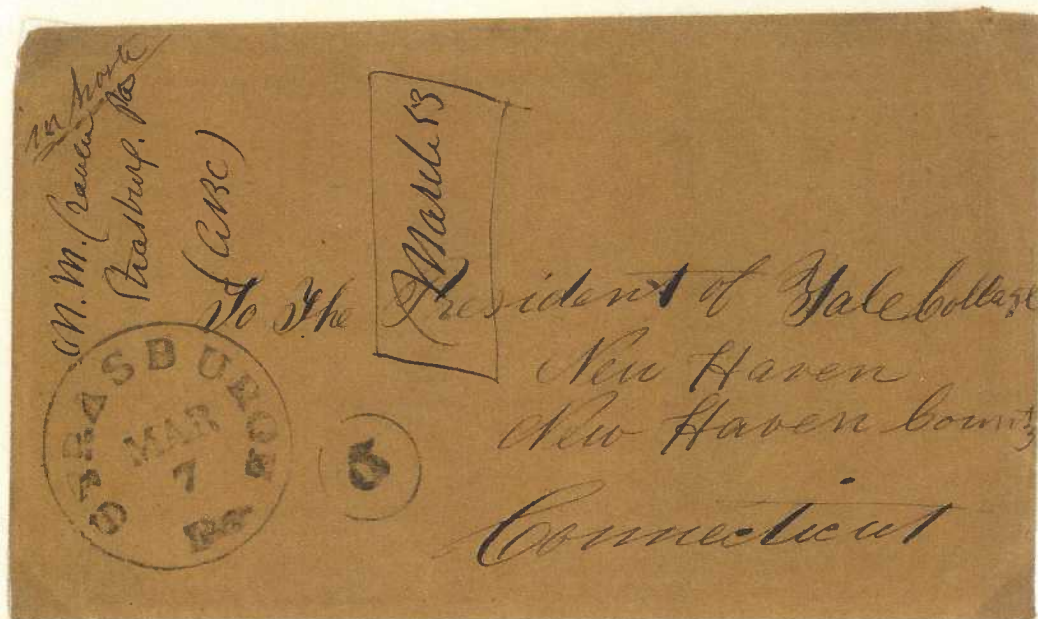 M. M. Craven
Strasburg. Pa
(ABC)
March 53
To The President of Yale Collage
New Haven
New Haven County
Connecticut
STRASBURGH
MAR
7
Pa.